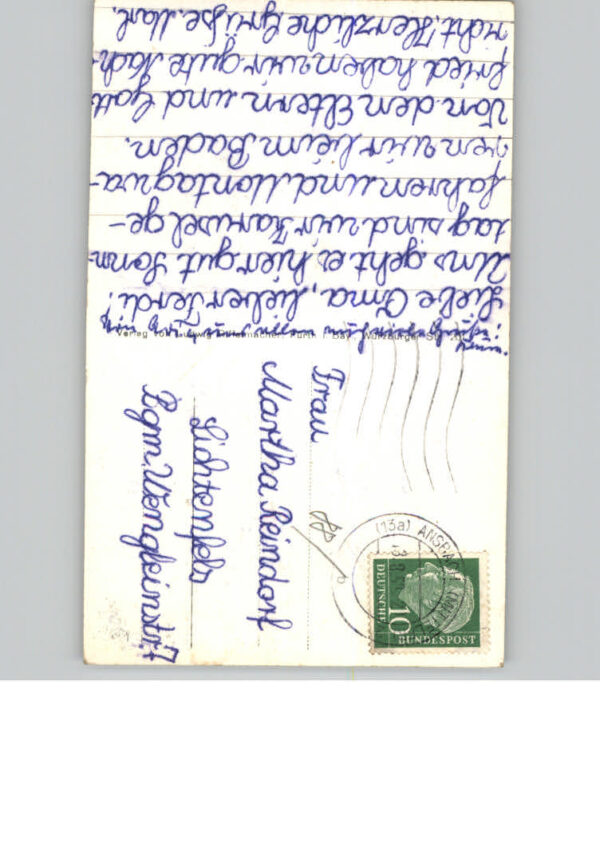 Liebe Oma, lieber Ferdi!
Uns geht es hier gut. Sonn-
tag sind wir Karusel ge-
fahren und Montag wa-
ren wir beim Baden.
Von den Eltern und Gott-
fried haben wir gute Nach-
richt. Herzliche Grüße.
Verlag von Ludwig Fürth i. Bay., Würzburger Str.
Frau
Martha Reindorf
Lichtenfels
Bgm. Wengleinstr. 7
(13a) ANSBACH
DEUTSCHE
BUNDESPOST
10